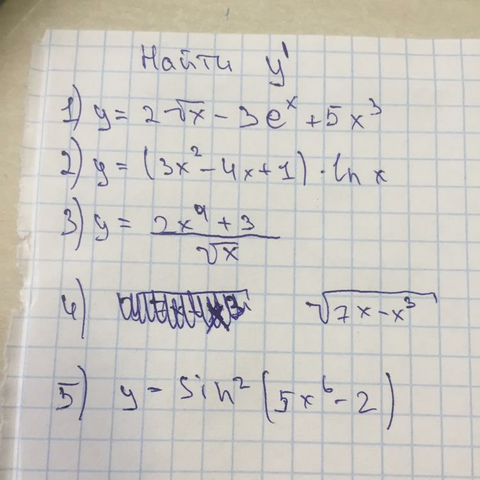 Найти y'
1) y = 2√x - 3e^x + 5x^3
2) y = (3x^2 - 4x + 1) · ln x
3) y = (2x^4 + 3)/√x
4) √(7x - x^3)
5) y = sin^2 (5x^6 - 2)